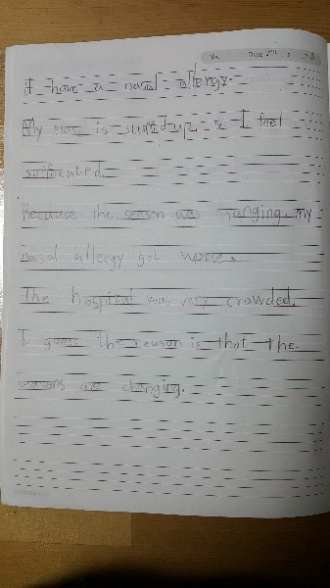 I have a nasal allergy.
My nose is stuffed up so I feel
suffocated.
Because the season was changing, my
nasal allergy got worse.
The hospital was very crowded.
I guess the reason is that the
seasons are changing.